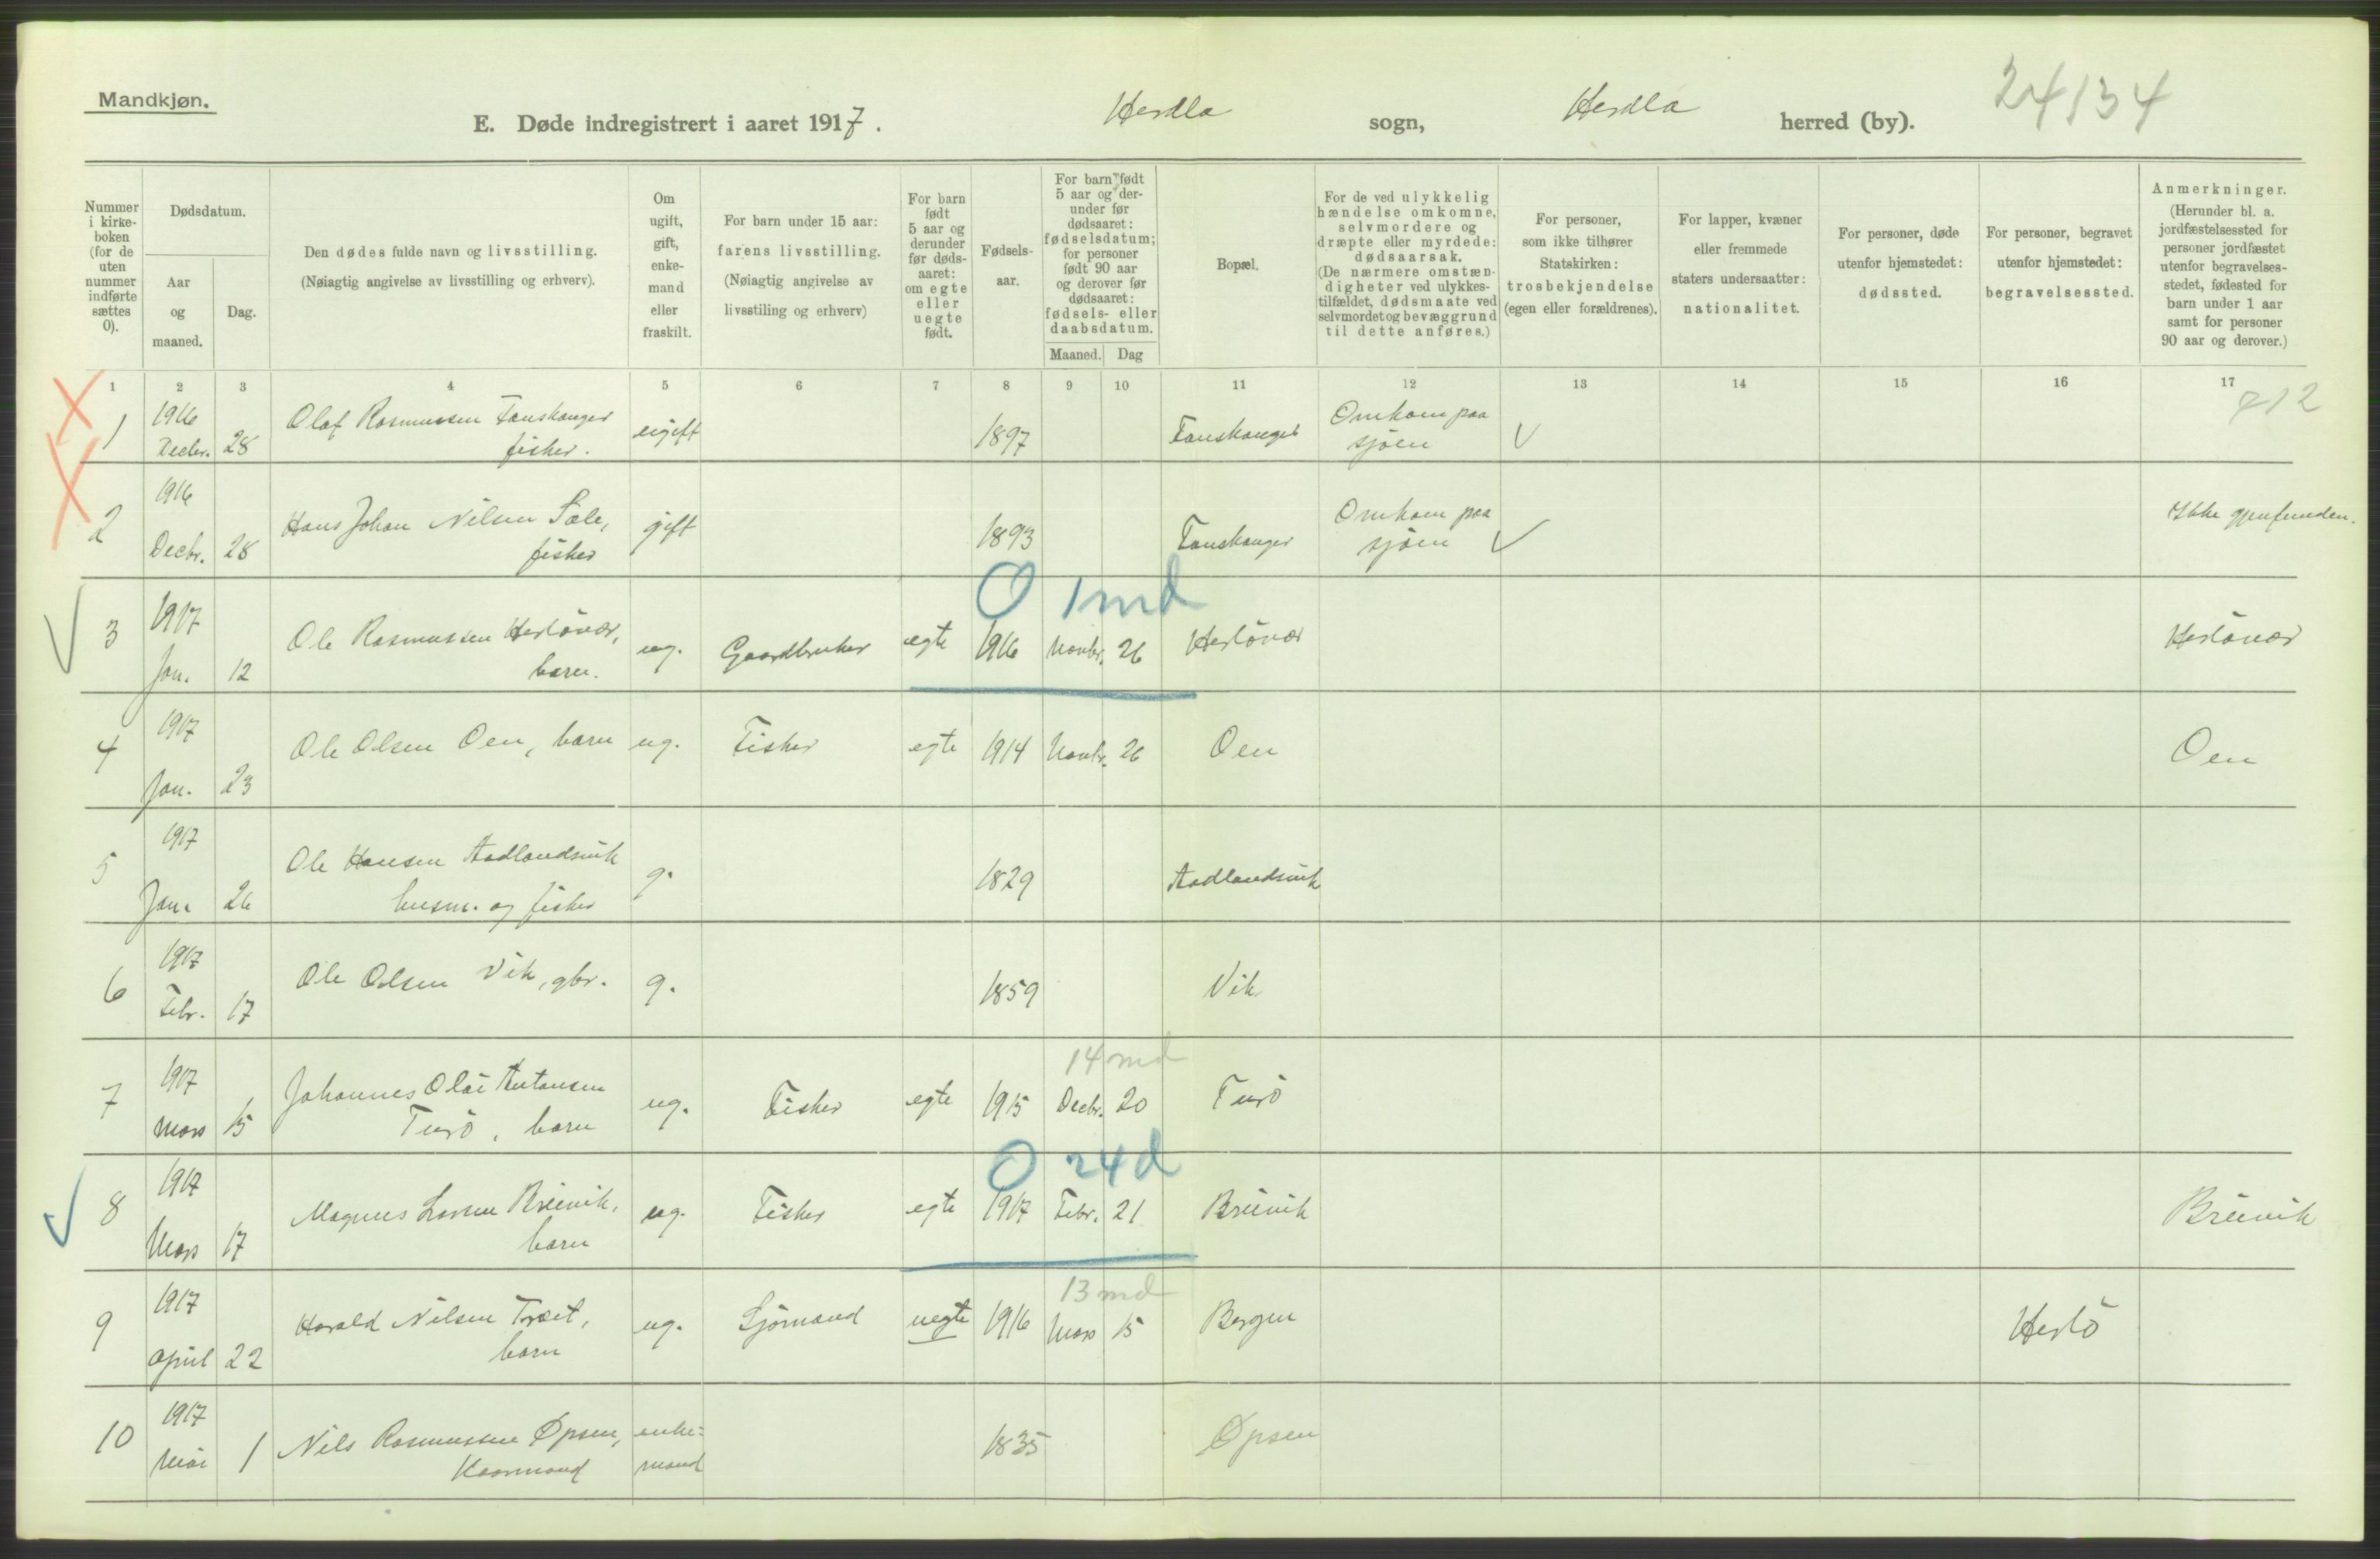 Mandkjøn.
E. Døde indregistrert i aaret 1917. Herdla sogn, Herdla herred (by).
24134
Nummer i kirke-boken (for de uten nummer indførte sættes 0).
Dødsdatum.
Aar og maaned.
Dag.
Den dødes fulde navn og livsstilling.
(Nøiagtig angivelse av livsstilling og erhverv).
Om ugift, gift, enke-mand eller fraskilt.
For barn under 15 aar:
farens livsstilling.
(Nøiagtig angivelse av livsstiling og erhverv)
For barn født 5 aar og derunder før døds-aaret: om egte eller uegte født.
Fødsels-aar.
For barn født 5 aar og der-under før dødsaaret: fødselsdatum; for personer født 90 aar og derover før dødsaaret: fødsels- eller daabsdatum.
Maaned. Dag
Bopæl.
For de ved ulykkelig hændelse omkomne, selvmordere og dræpte eller myrdede: dødsaarsak.
(De nærmere omstæn-digheter ved ulykkes-tilfældet, dødsmaate ved selvmordet og bevæggrund til dette anføres.)
For personer, som ikke tilhører Statskirken: trosbekjendelse (egen eller forældrenes).
For lapper, kvæner eller fremmede staters undersaatter: nationalitet.
For personer, døde utenfor hjemstedet: dødssted.
For personer, begravet utenfor hjemstedet: begravelsessted.
Anmerkninger.
(Herunder bl. a. jordfæstelsessted for personer jordfæstet utenfor begravelses-stedet, fødested for barn under 1 aar samt for personer 90 aar og derover.)
1 2 3 4 5 6 7 8 9 10 11 12 13 14 15 16 17
712
1 1916 Decbr. 28 Olaf Rasmussen Tanskanger fisker. ugift 1897 Tanskanger Omkom paa sjøen
2 1916 Decbr. 28 Hans Johan Nilsen Sæle, fisker gift 1893 Tanskanger Omkom paa sjøen Ikke gjenfunden.
0 1 md
3 1917 Jan. 12 Ole Rasmussen Herløvær, barn. ug. Gaardbruker egte 1916 Novbr. 26 Herløvær Herløvær
4 1917 Jan. 23 Ole Olsen Oen, barn ug. Fisker egte 1914 Novbr. 26 Oen Oen
5 1917 Jan. 26 Ole Hansen Aadlandsvik husm. og fisker g. 1829 Aadlandsvik
6 1917 Febr. 17 Ole Olsen Vik, gbr. g. 1859 Vik
14 md
7 1917 Mars 15 Johannes Olai Antonsen Turø, barn ug. Fisker egte 1915 Decbr. 20 Turø
0 24 d
8 1917 Mars 17 Magnus Larsen Breivik, barn ug. Fisker egte 1917 Febr. 21 Breivik Breivik
13 md
9 1917 April 22 Harald Nilsen Træet, barn ug. Sjømand uegte 1916 Mars 15 Bergen Herlø
10 1917 Mai 1 Nils Rasmussen Øpsen, Kaarmand enke=mand 1835 Øpsen